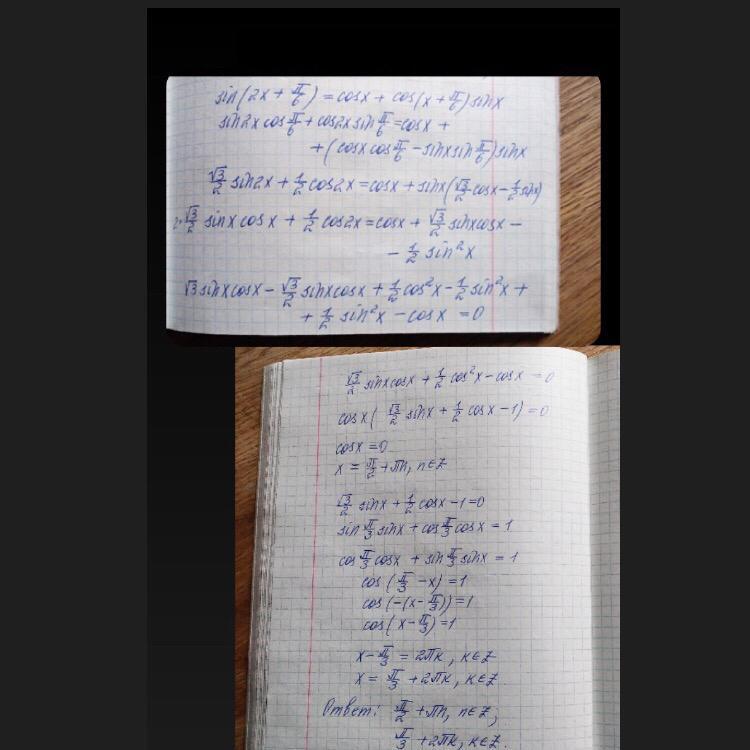 sin(2x + π/6) = cosx + cos(x + π/6) sinx
sin2x cos π/6 + cos2x sin π/6 = cosx +
+ (cosx cos π/6 - sinx sin π/6) sinx
√3/2 sin2x + 1/2 cos2x = cosx + sinx(√3/2 cosx - 1/2 sinx)
2·√3/2 sinx cosx + 1/2 cos2x = cosx + √3/2 sinxcosx -
- 1/2 sin²x
√3 sinxcosx - √3/2 sinxcosx + 1/2 cos²x - 1/2 sin²x +
+ 1/2 sin²x - cosx = 0
√3/2 sinxcosx + 1/2 cos²x - cosx = 0
cosx( √3/2 sinx + 1/2 cosx - 1) = 0
cosx = 0
x = π/2 + πn, n∈Z
√3/2 sinx + 1/2 cosx - 1 = 0
sin π/3 sinx + cos π/3 cosx = 1
cos π/3 cosx + sin π/3 sinx = 1
cos (π/3 - x) = 1
cos(-(x - π/3)) = 1
cos(x - π/3) = 1
x - π/3 = 2πk, k∈Z
x = π/3 + 2πk, k∈Z.
Ответ: π/2 + πn, n∈Z;
π/3 + 2πk, k∈Z.